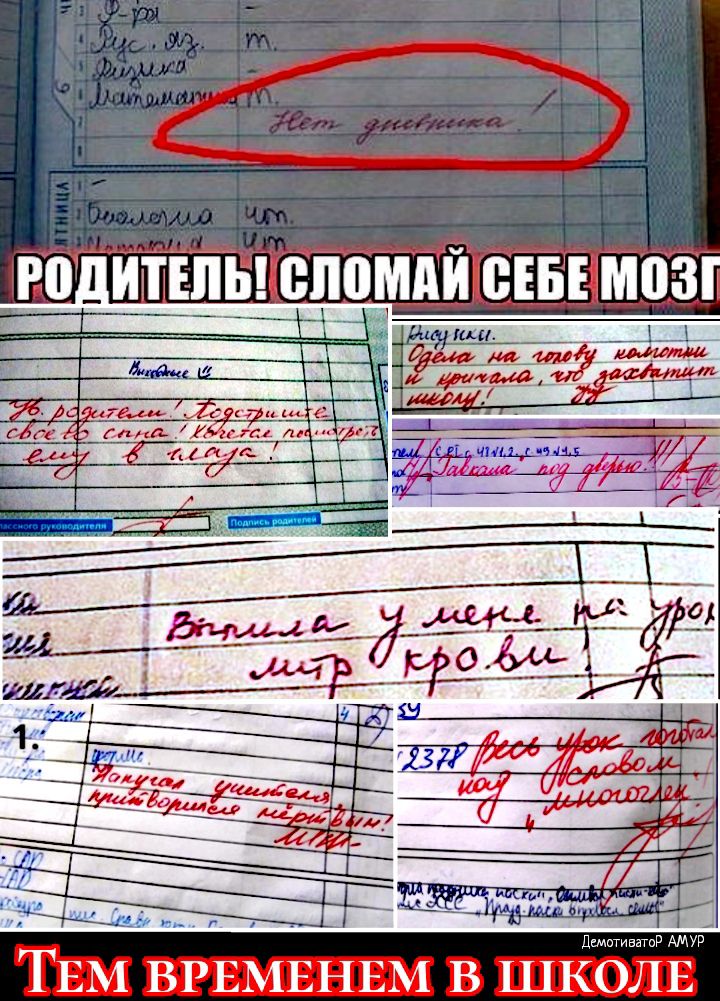 Р-ры -
Рус. яз. т.
Физика -
Математика т.
Нет дневника!
6
7
8
ЯТНИЦА
1
2
Биология чт.
чт.
РОДИТЕЛЬ! СЛОМАЙ СЕБЕ МОЗГ
Выходные !!
Ув. родители! Подстригите
своего сына! Хочется посмотреть
ему в глаза!
лассного руководителя
Подпись родителей
Рисунки.
Одела на голову колготки
и кричала, что захватит
школу!
"Гавкала" под дверью!!!
Выпила у меня на урок
литр крови!
1.
4
форм.
Напугал учителя,
притворился мёртвым!
39
2378
Весь урок гоготал
над словом
"многочлен".
ДемотиватоР АМУР
Тем временем в школе